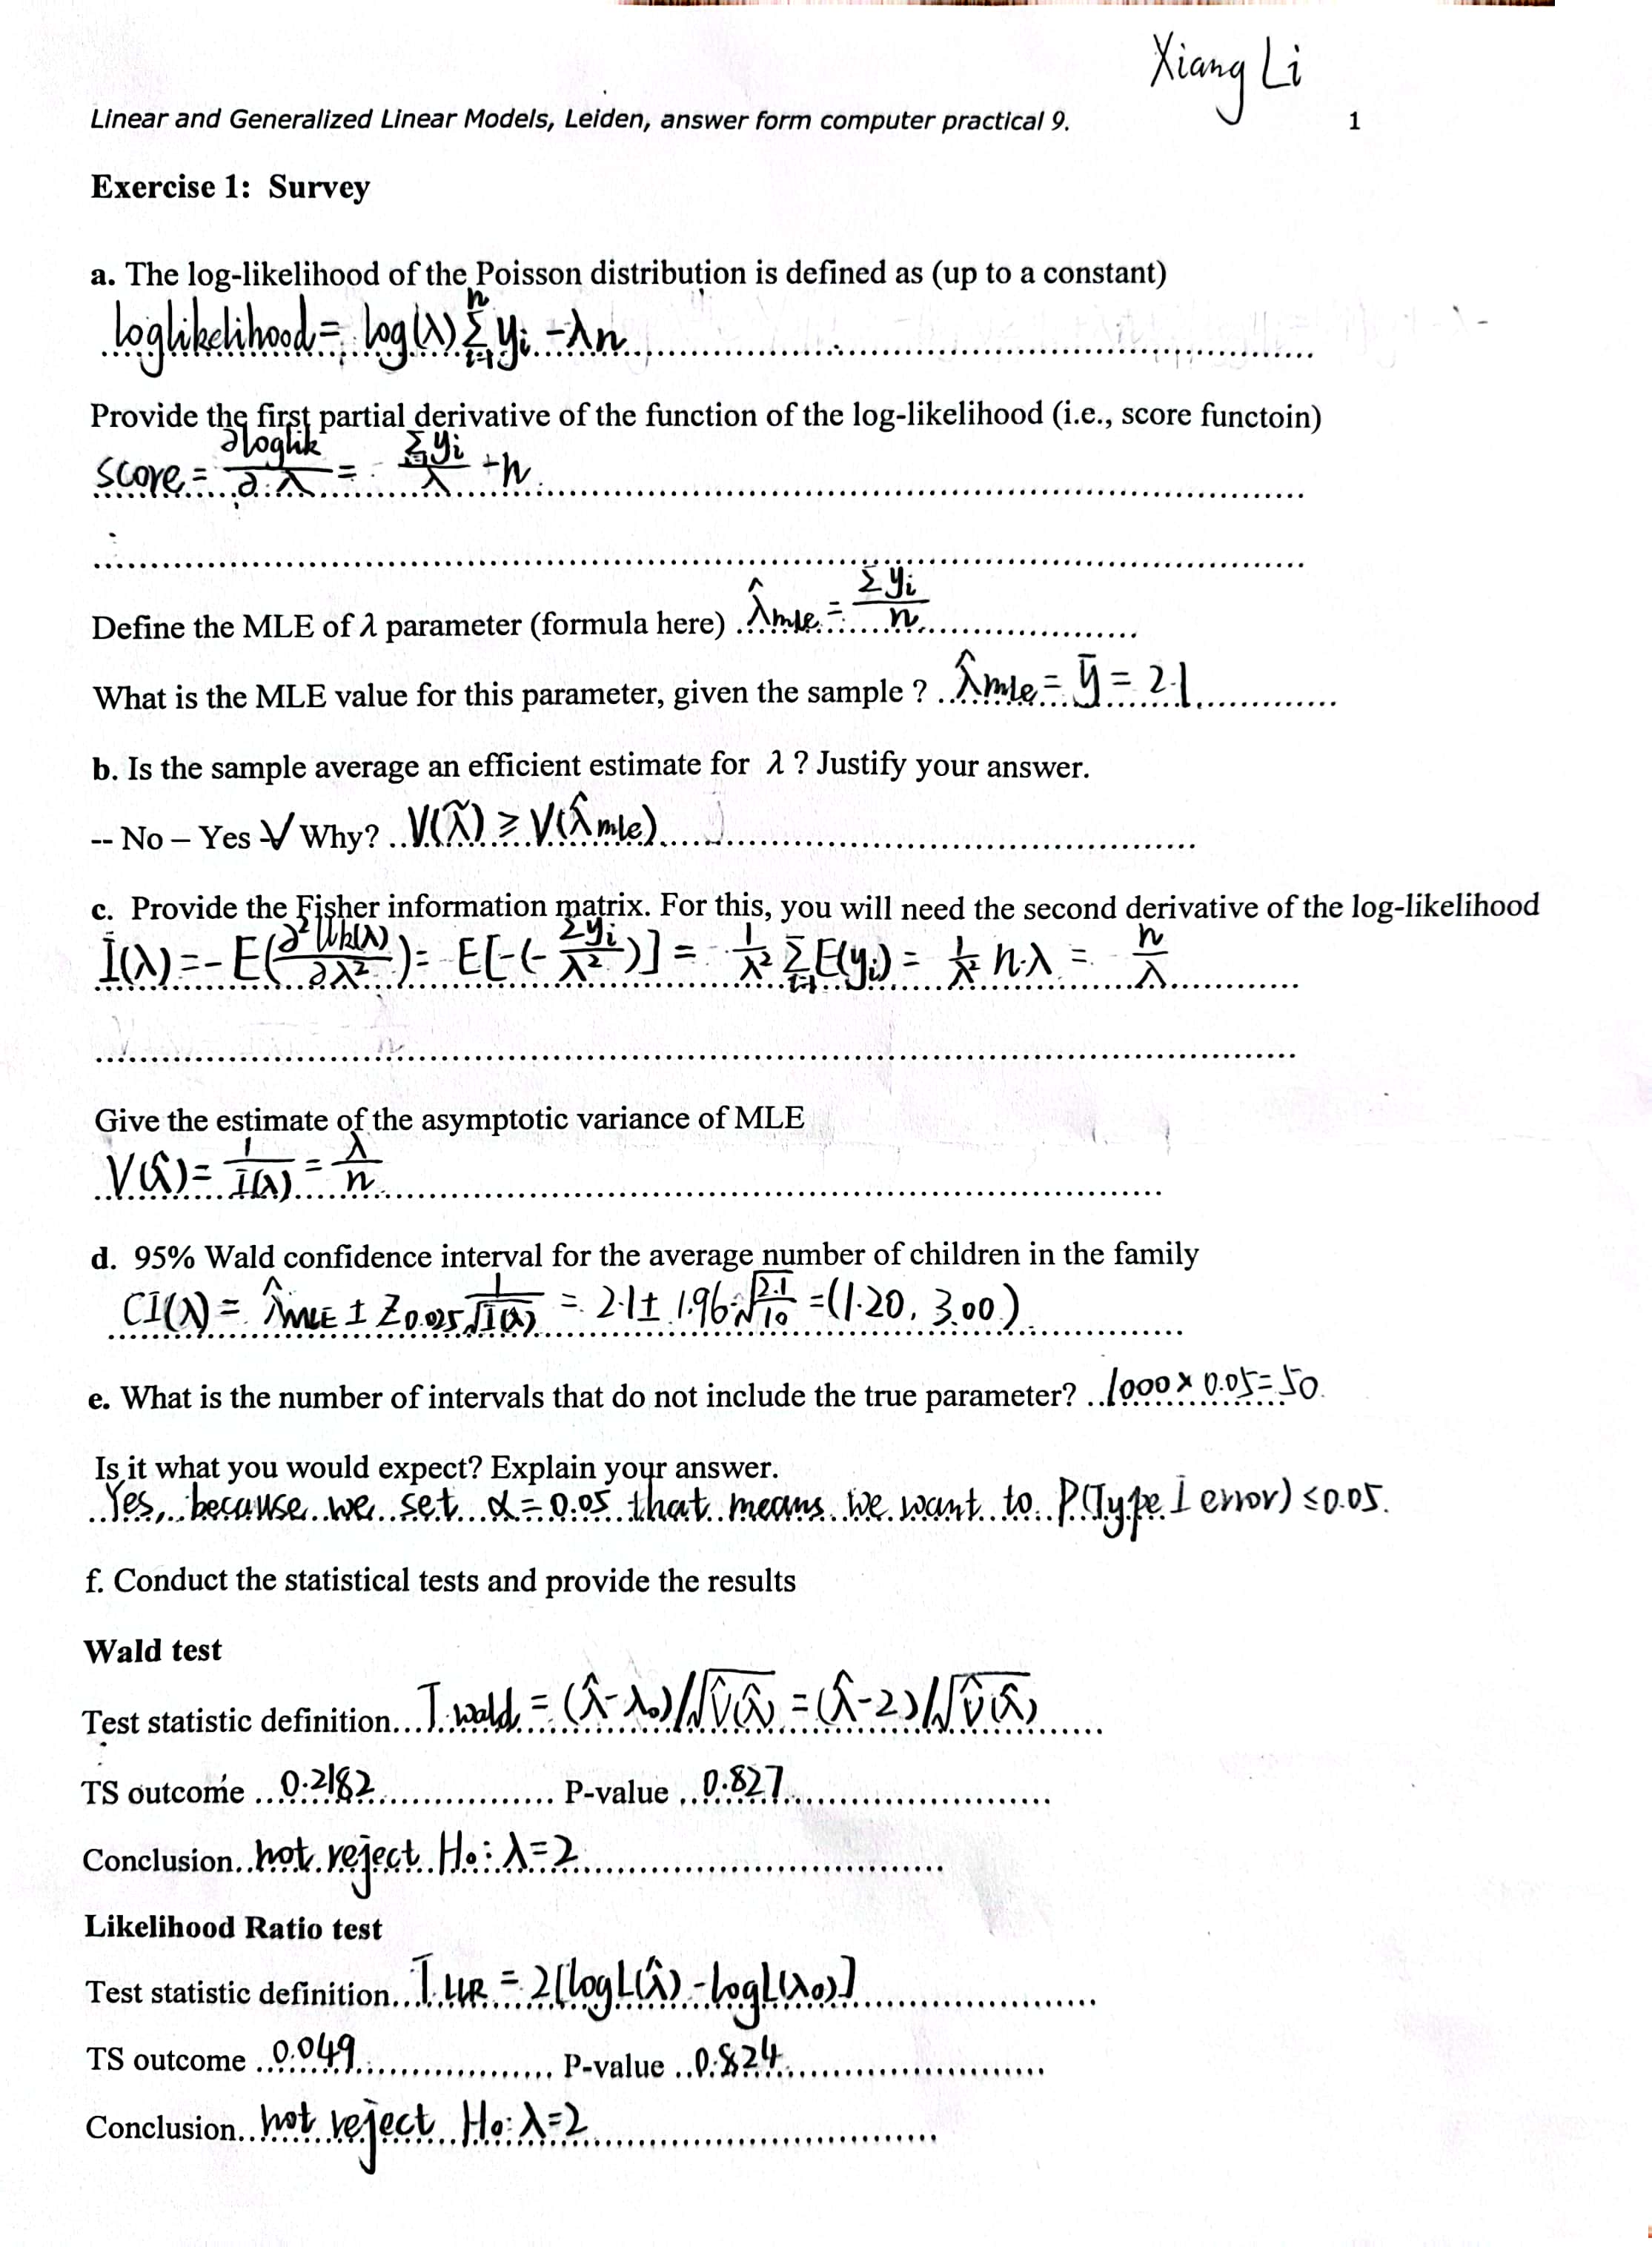 Xiang Li
Linear and Generalized Linear Models, Leiden, answer form computer practical 9. 1
Exercise 1: Survey
a. The log-likelihood of the Poisson distribution is defined as (up to a constant)
loglikelihood = log(λ) Σ_{i=1}^{n} yi - λn
Provide the first partial derivative of the function of the log-likelihood (i.e., score functoin)
score = ∂loglik / ∂λ = Σyi / λ - n
Define the MLE of λ parameter (formula here) λ̂mle = Σyi / n
What is the MLE value for this parameter, given the sample ? λ̂mle = ȳ = 2.1
b. Is the sample average an efficient estimate for λ ? Justify your answer.
-- No – Yes √ Why? V(λ̃) ≥ V(λ̂mle)
c. Provide the Fisher information matrix. For this, you will need the second derivative of the log-likelihood
I(λ) = - E(∂² lik(λ) / ∂λ²) = E[-(- Σyi / λ²)] = 1/λ² Σ_{i=1} E(yi) = 1/λ² n·λ = n/λ
Give the estimate of the asymptotic variance of MLE
V(λ̂) = 1 / I(λ) = λ / n
d. 95% Wald confidence interval for the average number of children in the family
CI(λ) = λ̂MLE ± Z0.025 1/√I(λ) = 2.1 ± 1.96·√(2.1/10) = (1.20, 3.00)
e. What is the number of intervals that do not include the true parameter? 1000 × 0.05 = 50.
Is it what you would expect? Explain your answer.
Yes, because we set α = 0.05 that means we want to P(Type I error) ≤ 0.05.
f. Conduct the statistical tests and provide the results
Wald test
Test statistic definition... Twald = (λ̂ - λ0)/√V̂(λ̂) = (λ̂ - 2)/√V̂(λ̂)
TS outcome ..0.2182 P-value ..0.827
Conclusion.. not reject H0: λ = 2
Likelihood Ratio test
Test statistic definition... TLLR = 2[logL(λ̂) - logL(λ0)]
TS outcome ..0.049 P-value ..0.824
Conclusion.. not reject H0: λ = 2